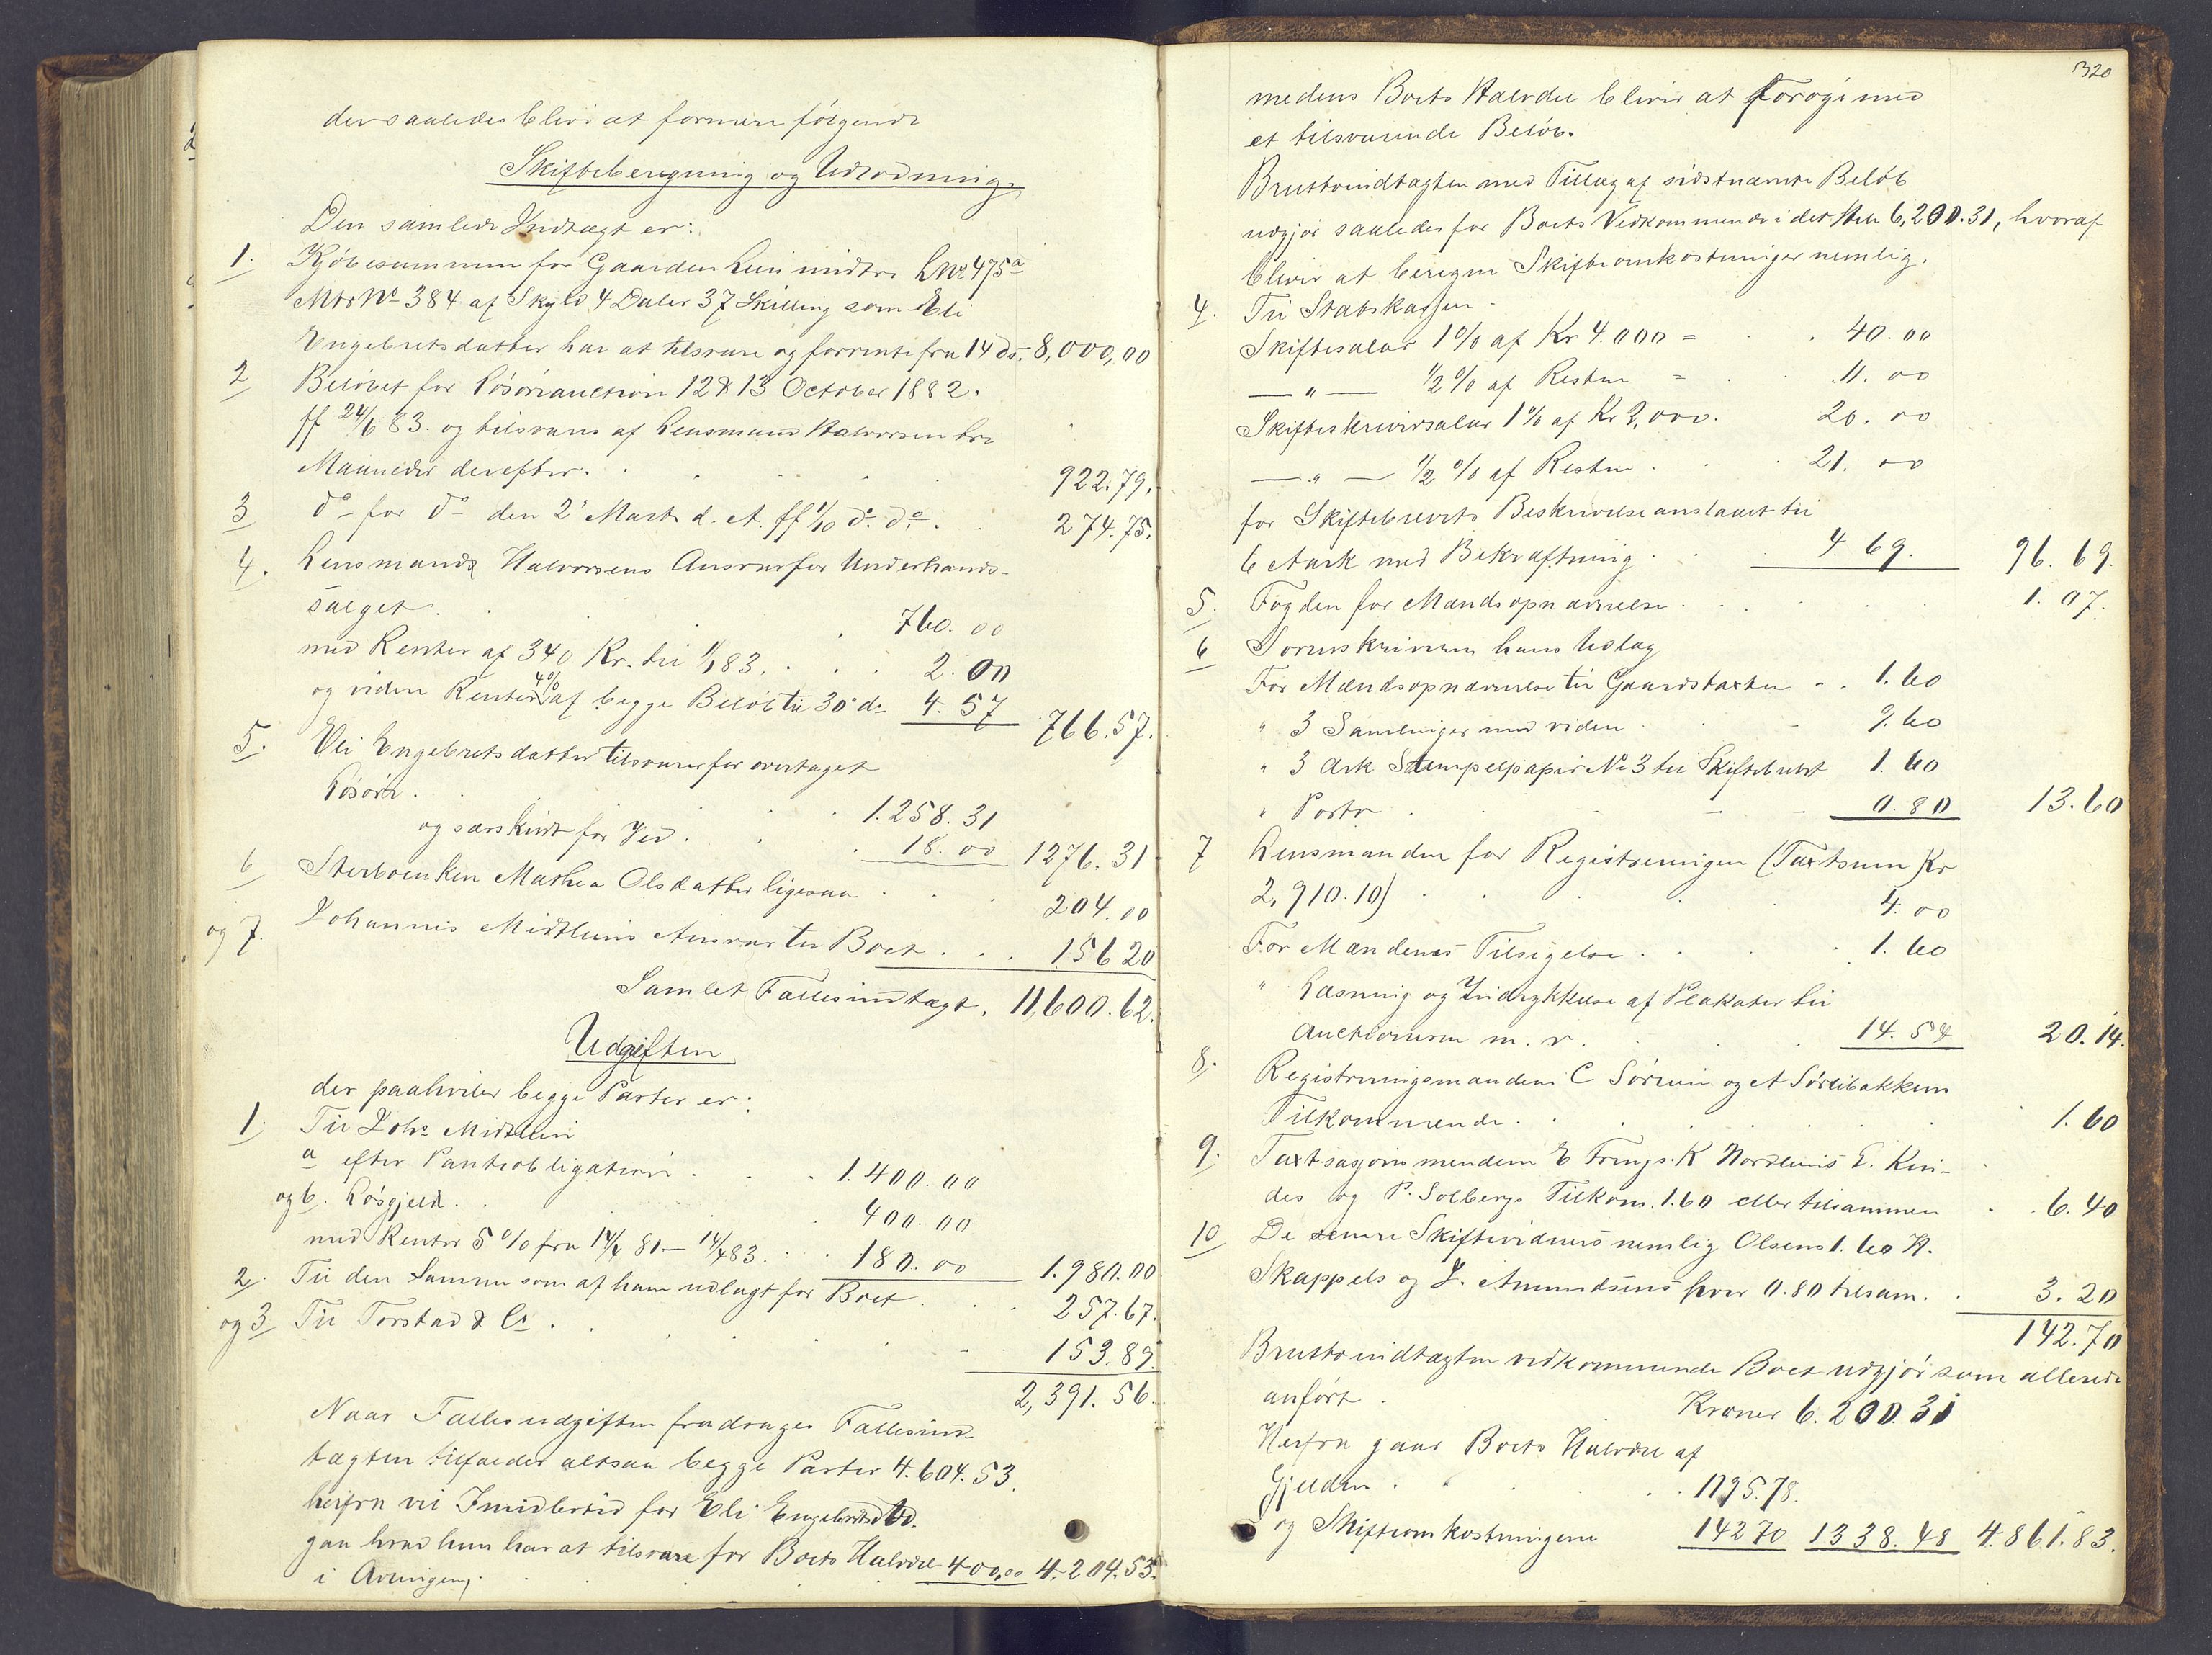 der saaledes bliver at formere følgende
Skifteberegning og Udlodning.
Den samlede Indtægt er:
1. Kjøbesummen for Gaarden Lien midtre LNo 475a
Mtr No 384 af Skyld 4 Daler 37 Skilling som Eli
Engebretsdatter har at tilsvare og forrente fra 14 ds. 8,000,00
2 Beløbet for Løsøreauction 12 & 13 October 1882.
ff 24/6 83. og tilsvares af Lensmand Halvorsen tre
Maaneder derefter. 922.79.
3 do for do den 2' Marts d. A. ff 1/10 do. do. 274.75.
4. Lensmand Halvorsens Ansvar for Underhaands-
salget. 760.00
med Renter af 340 Kr. til 1/1 83. 2.00
og videre Renter 4% af begge Beløb til 30' ds 4.57 766.57.
5. Eli Engebretsdatter tilsvarer for overtaget
Løsøre. 1.258.31
og særskildt for Ved. 18.00 1276.31
6 Sterboenken Mathea Olsdatter ligesaa 204.00
og 7. Johannes Midtliens Ansvar til Boet 156 20
Samlet Fællesindtægt. 11,600.62.
Udgiften
der paahviler begge Parter er:
1. Til Johs Midtlien
a efter Pantobligation. 1.400.00
og b. Løsgjeld. 400.00
med Renter 5 % fra 14/4 81 – 14/4 83. 180.00 1.980.00
2. Til den Samme som af ham udlagt for Boet 257.67.
og 3 Til Torstad & Co. 153.89.
2,391.56.
Naar Fællesudgiften fradrages Fællesind-
tægten tilfalder altsaa begge Parter 4.604.53.
herfra vil Imidlertid for Eli Engebretsd
gaa hvad hun har at tilsvare for Boets Halvdel 400,00 4.204.53.
i Avlingen,
320
medens Boets Halvdel bliver at forøge med
et tilsvarende Beløb.
Bruttoindtægten med Tillæg af sidstnævnte Beløb
udgjør saaledes for Boets Vedkommende i det Hele 6,200.31, hvoraf
bliver at beregne Skifteomkostninger nemlig.
4. Til Statskassen.
Skiftesalær 1% af Kr 4.000 = 40.00
— " — 1/2 % af Resten = 11.00
Skifteskriversalær 1% af Kr 2,000. 20.00
— " — 1/2 % af Resten. 21.00
for Skiftebrevets Beskrivelse anslaaet til
6 Aark med Bekræftning 4.69. 96.69.
5. Fogden for Mændsopnævnelse 1.07.
6 Sorenskriveren hans Udlæg
For Mændsopnævnelse til Gaardstaxten 1.60
" 3 Samlinger med viden 9.60
" 3 Ark Stempelpapir No 3 til Skiftebrevet 1.60
" Porto 0.80 13.60
7 Lensmanden for Registreringen (Taxtsum Kr
2,910.10) 4.00
For Mændenes Tilsigelse 1.60
" Læsning og Indrykkelse af Plakater til
Auctionerne m. v. 14.54 20.14.
8. Registreringsmændene C Sørlien og A Sørlibakkens
Tilkommende. 1.60
9. Taxtsagionsmændene E K Nordliens
des og P. Solbergs Tilkom. 1.60 eller tilsammen 6.40
10 De senere Skiftevidners nemlig Olsens 1.60 H.
Skappels og J. Amundsens hver 0.80 tilsam. 3.20
142.70
Bruttoindtægten vedkommende Boet udgjør som allerede
anført. Kroner 6.200.31
Herfra gaar Boets Halvdel af
Gjelden. 1195.78.
og Skifteomkostningerne 142 70 1338.48 4.861.83.